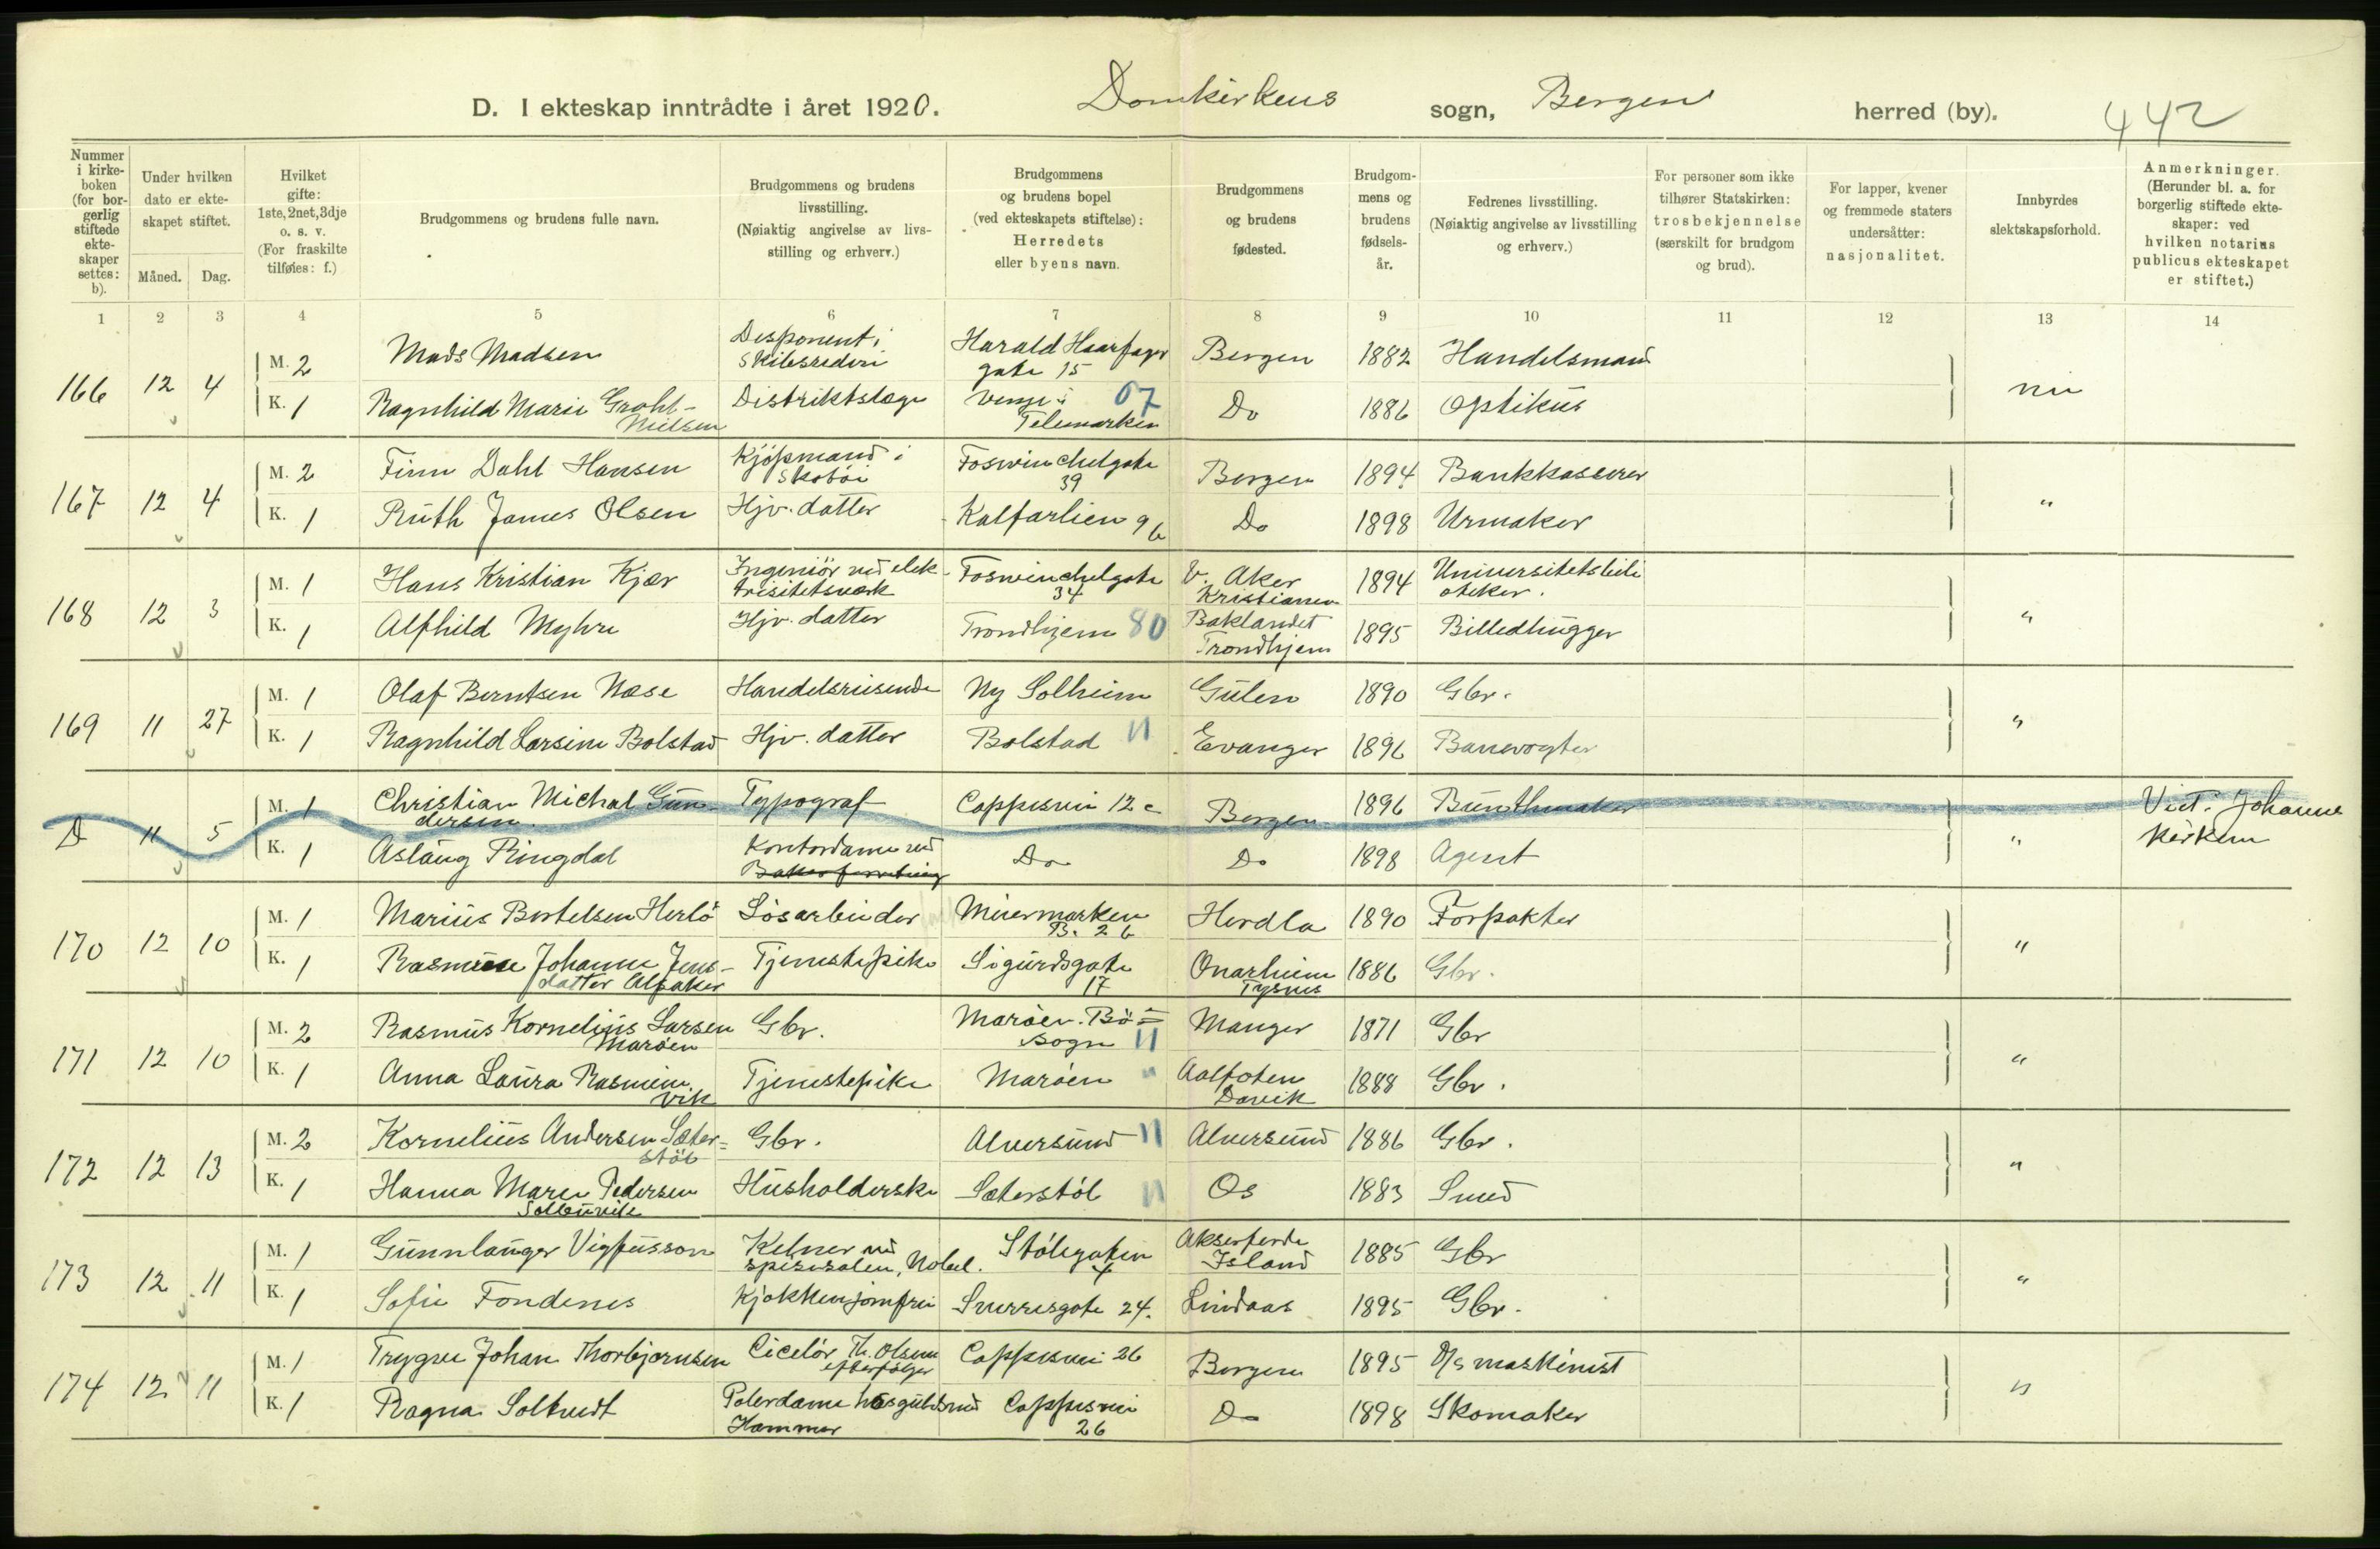 D. I ekteskap inntrådte i året 1920. Domkirkens sogn, Bergen herred (by). 442
Nummer i kirkeboken (for borgerlig stiftede ekteskaper settes: b).
Under hvilken dato er ekteskapet stiftet.
Måned. Dag.
Hvilket gifte: 1ste, 2net, 3dje o. s. v. (For fraskilte tilføies: f.)
Brudgommens og brudens fulle navn.
Brudgommens og brudens livsstilling. (Nøiaktig angivelse av livsstilling og erhverv.)
Brudgommens og brudens bopel (ved ekteskapets stiftelse): Herredets eller byens navn.
Brudgommens og brudens fødested.
Brudgommens og brudens fødselsår.
Fedrenes livsstilling. (Nøiaktig angivelse av livsstilling og erhverv.)
For personer som ikke tilhører Statskirken: trosbekjennelse (særskilt for brudgom og brud).
For lapper, kvener og fremmede staters undersåtter: nasjonalitet.
Innbyrdes slektskapsforhold.
Anmerkninger. (Herunder bl. a. for borgerlig stiftede ekteskaper: ved hvilken notarius publicus ekteskapet er stiftet.)
1 2 3 4 5 6 7 8 9 10 11 12 13 14
166 12 4 M. 2 Mads Madsen Disponent i Skibsrederi Harald Haarfager gate 15 Bergen 1882 Handelsmand nei
K. 1 Ragnhild Marie Grahl-Nielsen Distriktslæge Vinje i Telemarken 07 Do 1886 Optikus
167 12 4 M. 2 Finn Dahl Hansen Kjøpmand i Skotøi Foswinchelgate 39 Bergen 1894 Bankkasserer "
K. 1 Ruth James Olsen Hjv. datter Kalfarlien 9b Do 1898 Urmaker
168 12 3 M. 1 Hans Kristian Kjær Ingeniör ved elektrisitetsverk Foswinchelgate 34 V. Aker Kristiania 1894 Universitetsbiblioteker. "
K. 1 Alfhild Myhre Hjv. datter Trondhjem 80 Baklandet Trondhjem 1895 Billedhugger
169 11 27 M. 1 Olaf Berntsen Næse Handelsreisende Ny Solheim Gulen 1890 Gbr. "
K. 1 Ragnhild Larsine Bolstad Hjv. datter Bolstad 11 Evanger 1896 Banevogter
D 11 5 M. 1 Christian Michal Gundersen Typograf Cappesvei 12c Bergen 1896 Bunthmaker " Viet i Johannes kirken
K. 1 Aslaug Ringdal Kontordame ved Bakerforretning Do Do 1898 Agent
170 12 10 M. 1 Marius Bertelsen Herlö Løsarbeider Møhlenmarken B. 26 Herdla 1890 Forpakter "
K. 1 Rasmine Johanne Jensdatter Alsaker Tjenestepike Sigurdsgate 17 Onarheim Tysnes 1886 Gbr.
171 12 10 M. 2 Rasmus Kornelius Larsen Marøen Gbr. Marøen. Bø = sogn 11 Manger 1871 Gbr "
K. 1 Anna Laura Rasmine Vik Tjenestepike Marøen " Aalfoten Davik 1888 Gbr.
172 12 13 M. 2 Kornelius Andersen Sæter=støl Gbr. Alversund 11 Alversund 1886 Gbr. "
K. 1 Hanna Maren Pedersen Solbuvik Husholderske Sæterstøl 11 Os 1883 Smed
173 12 11 M. 1 Gunnlauger Vigfusson Kelner ved spisesalen, Nobel. Stølegaten 4 Akserferde Island 1885 Gbr "
K. 1 Sofie Fondenes Kjøkkenjomfru Sverresgate 24. Lindaas 1895 Gbr.
174 12 11 M. 1 Trygve Johan Thorbjørnsen Ciselør Th. Olsens efterfølger Cappesvei 26 Bergen 1895 D/s maskinist "
K. 1 Ragna Soltvedt Polerdame hos guldsmed Hammer Cappesvei 26 Do 1898 Skomaker